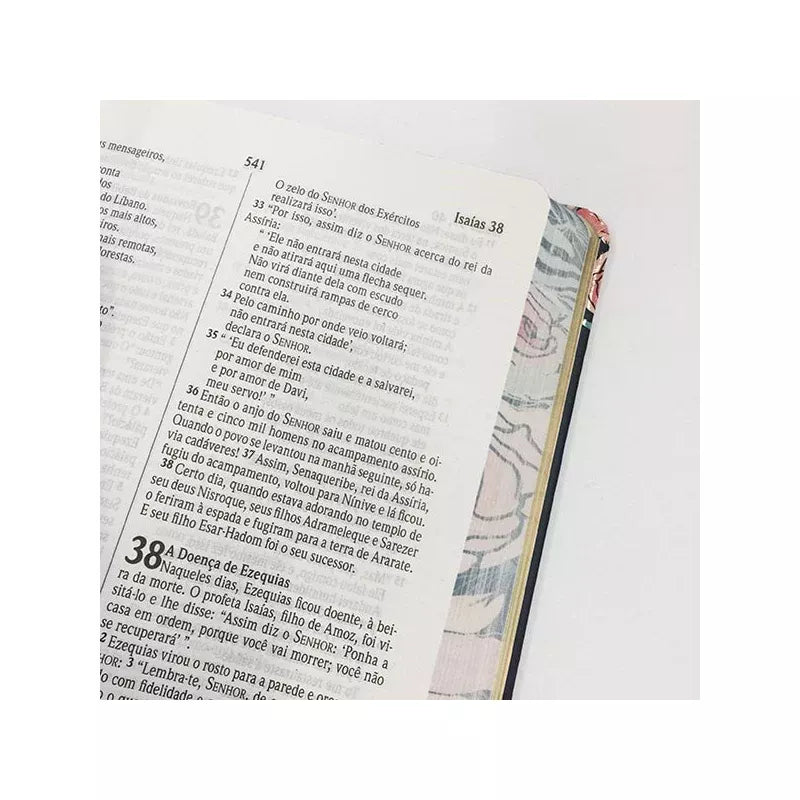 541
Isaías 38
mensageiros,
do Líbano.
mais altos,
mais remotas,
O zelo do SENHOR dos Exércitos
realizará isso'.
33 “Por isso, assim diz o SENHOR acerca do rei da
Assíria:
“ ‘Ele não entrará nesta cidade
e não atirará aqui uma flecha sequer.
Não virá diante dela com escudo
nem construirá rampas de cerco
contra ela.
34 Pelo caminho por onde veio voltará;
não entrará nesta cidade’,
declara o SENHOR.
35 “ ‘Eu defenderei esta cidade e a salvarei,
por amor de mim
e por amor de Davi,
meu servo!’ ”
36 Então o anjo do SENHOR saiu e matou cento e oi-
tenta e cinco mil homens no acampamento assírio.
Quando o povo se levantou na manhã seguinte, só ha-
via cadáveres! 37 Assim, Senaqueribe, rei da Assíria,
fugiu do acampamento, voltou para Nínive e lá ficou.
38 Certo dia, quando estava adorando no templo de
seu deus Nisroque, seus filhos Adrameleque e Sarezer
o feriram à espada e fugiram para a terra de Ararate.
E seu filho Esar-Hadom foi o seu sucessor.
38 A Doença de Ezequias
Naqueles dias, Ezequias ficou doente, à bei-
ra da morte. O profeta Isaías, filho de Amoz, foi vi-
sitá-lo e lhe disse: “Assim diz o SENHOR: ‘Ponha a
casa em ordem, porque você vai morrer; você não
se recuperará’ ”.
2 Ezequias virou o rosto para a parede e
SENHOR: 3 “Lembra-te, SENHOR, de
com fidelidade